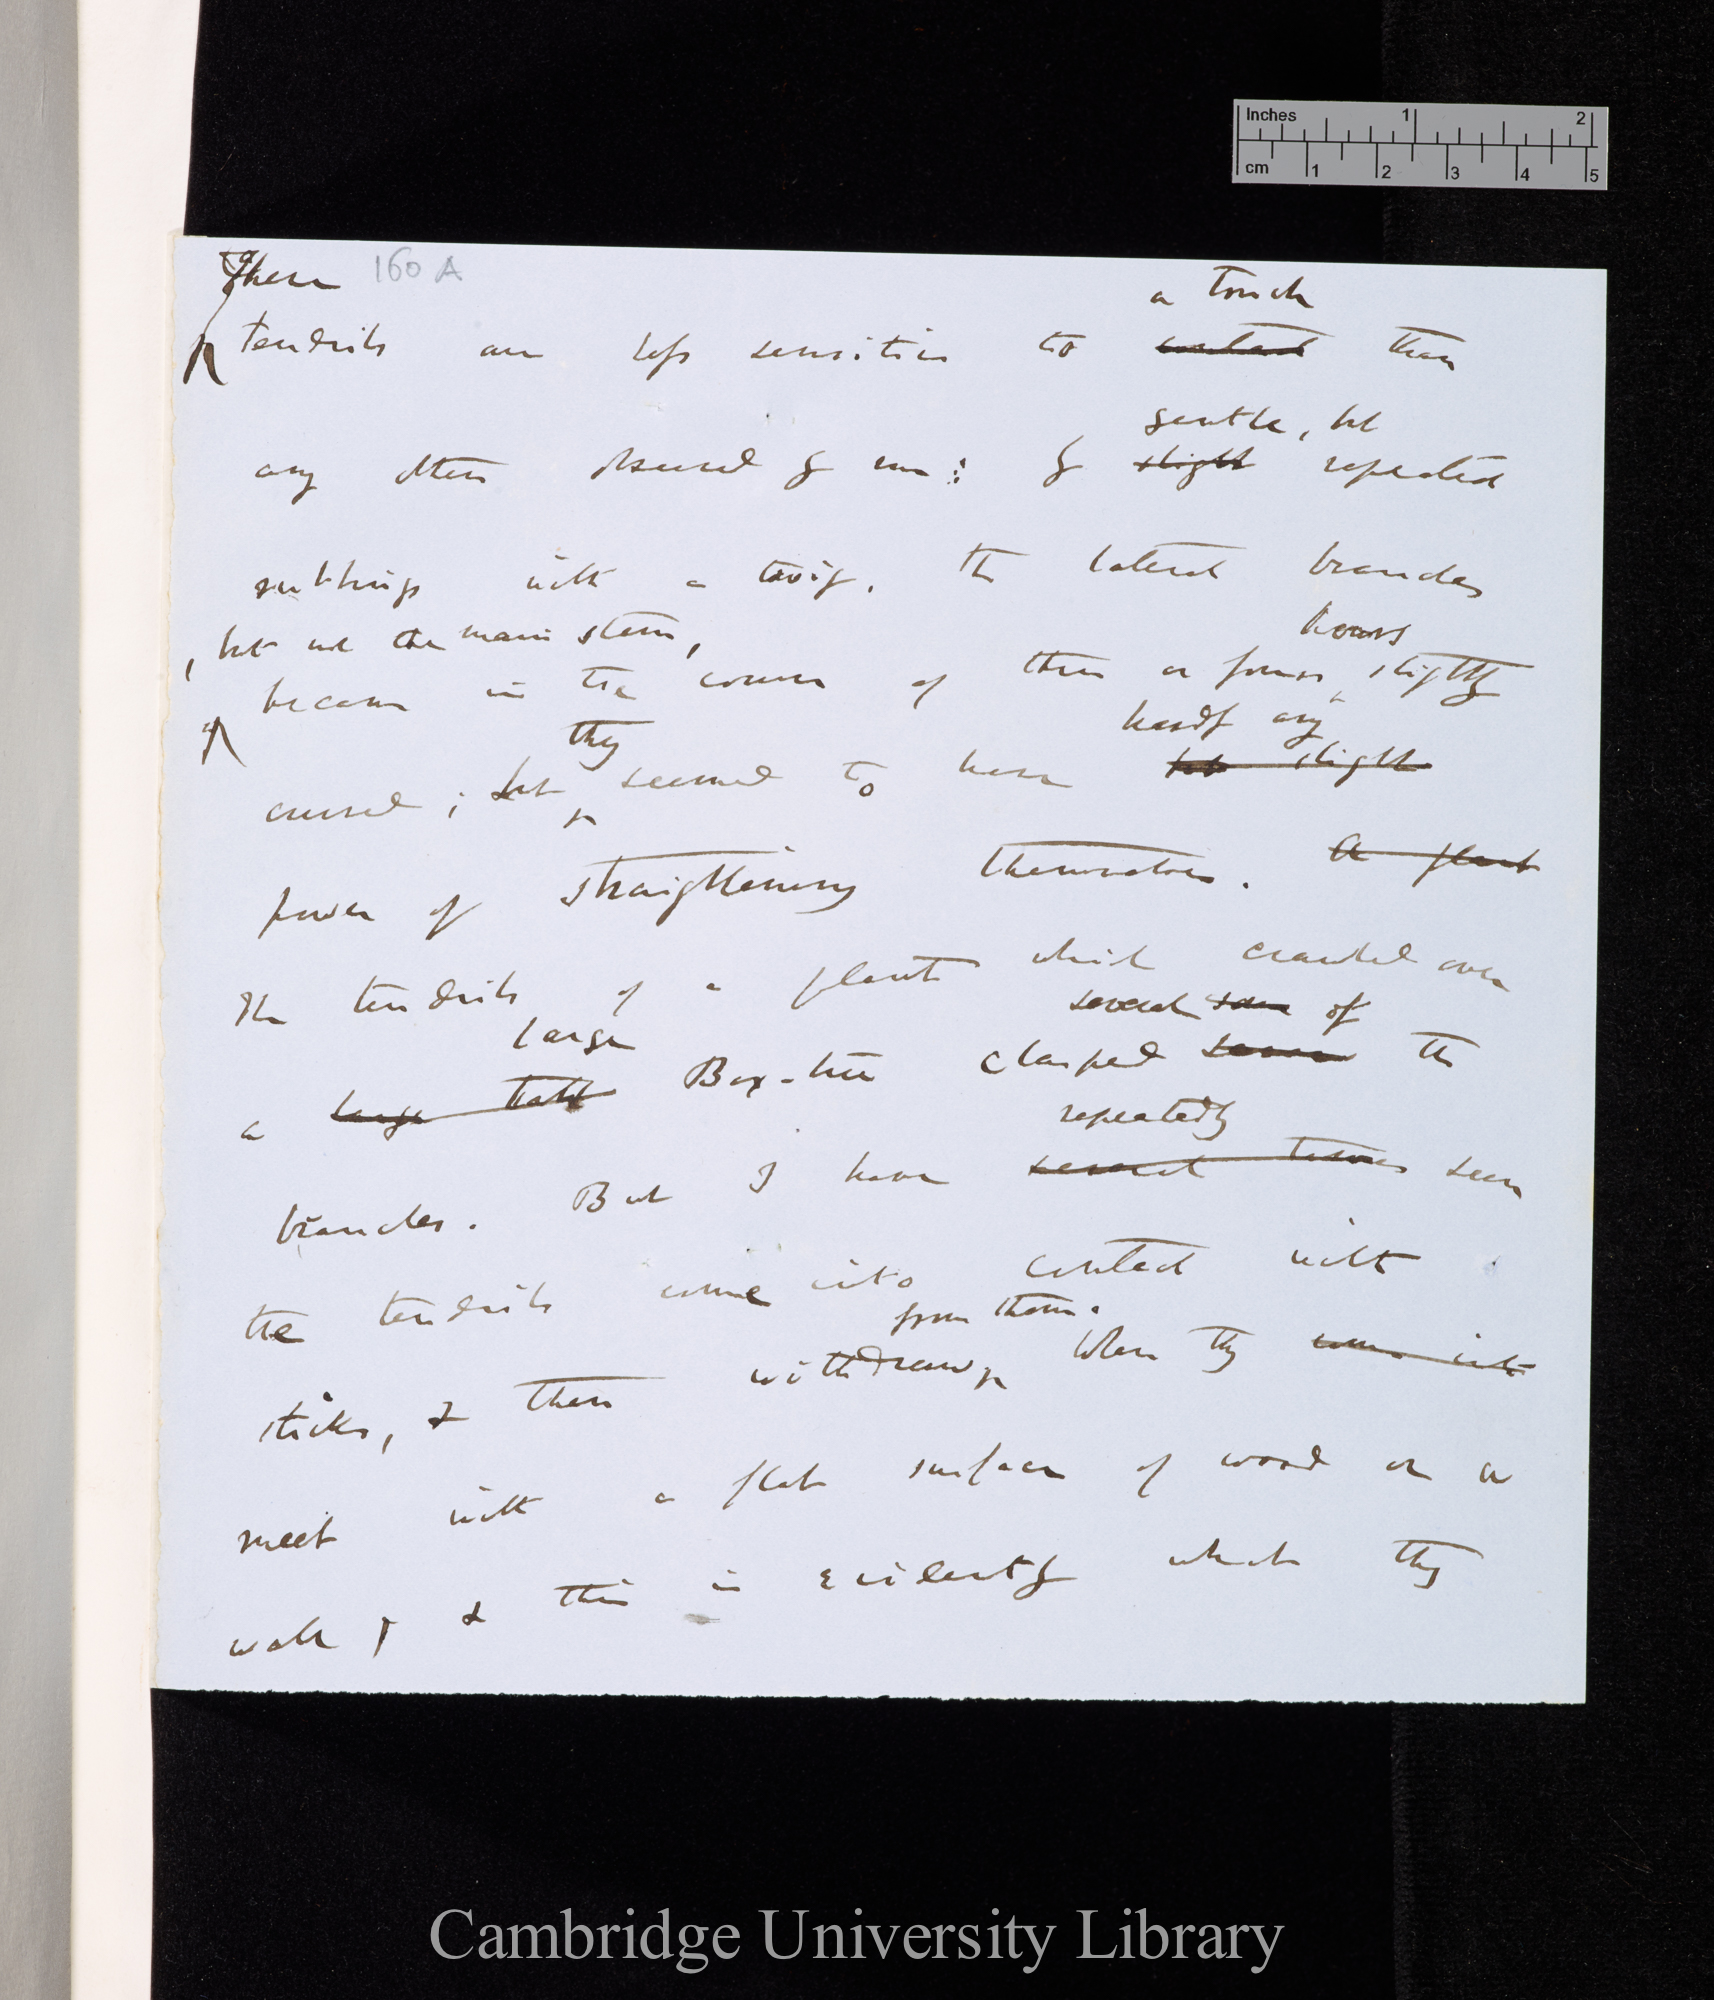 Inches 1 2
cm 1 2 3 4 5
These 160 A
a touch
tendrils are less sensitive to contact than
gentle, but
any others observed by me: by slight repeated
rubbings with a twig, the lateral branches
, but not the main stem,
hours
became in the course of three or four slightly
they
hardly any
curved; but seemed to have but slight
power of straightening themselves. A plant
The tendrils of a plant which crawled over
large
several some of
a large tall Box-tree clasped some the
repeatedly
branches. But I have several times seen
the tendrils come into contact with
from them.
sticks, & then withdraw. When they come into
meet with a flat surface of wood or a
wall, & this is evidently what they
Cambridge University Library